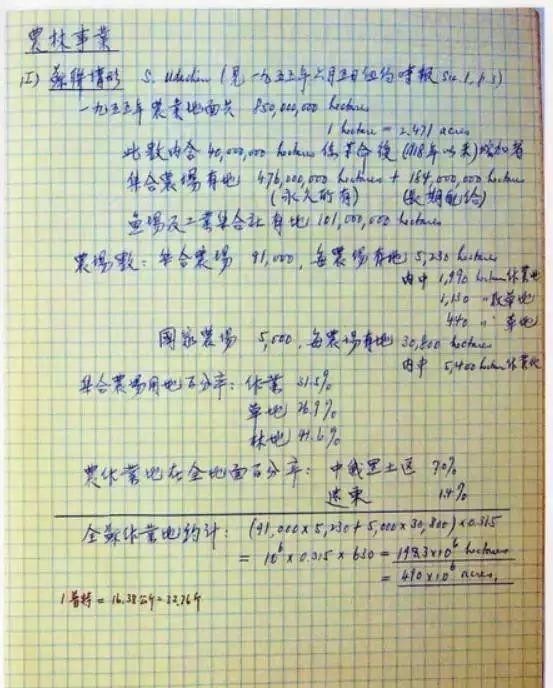 農林事業
(I) 蘇聯情形 S. (見一九五五年六月五日紐約時報 Sec. 1, p. 5)
一九五五年農業地面共 850,000,000 hectares
1 hectare = 2.471 acres
此數內含 40,000,000 hectares 係革命後 (1918年以來) 增加者
集合農場有地 476,000,000 hectares + 184,000,000 hectares
(永久所有) (長期配給)
魚場及工業集合社有地 101,000,000 hectares
農場數: 集合農場 91,000, 每農場有地 5,230 hectares
內中 1,990 hectares 作業地
1,130 〃 草地
440 〃 草地
國家農場 5,000, 每農場有地 30,800 hectares
內中 5,400 hectares 作業地
集合農場用地百分率: 作業 31.5%
草地 26.9%
林地 41.6%
農作業地在全地面百分率: 中俄黑土區 70%
遠東 1.4%
全蘇作業地約計: (91,000 x 5,230 + 5,000 x 30,800) x 0.315
= 10⁶ x 0.315 x 630 = 198.3 x 10⁶ hectares
= 490 x 10⁶ acres.
1 普特 = 16.38 公斤 = 32.76 斤